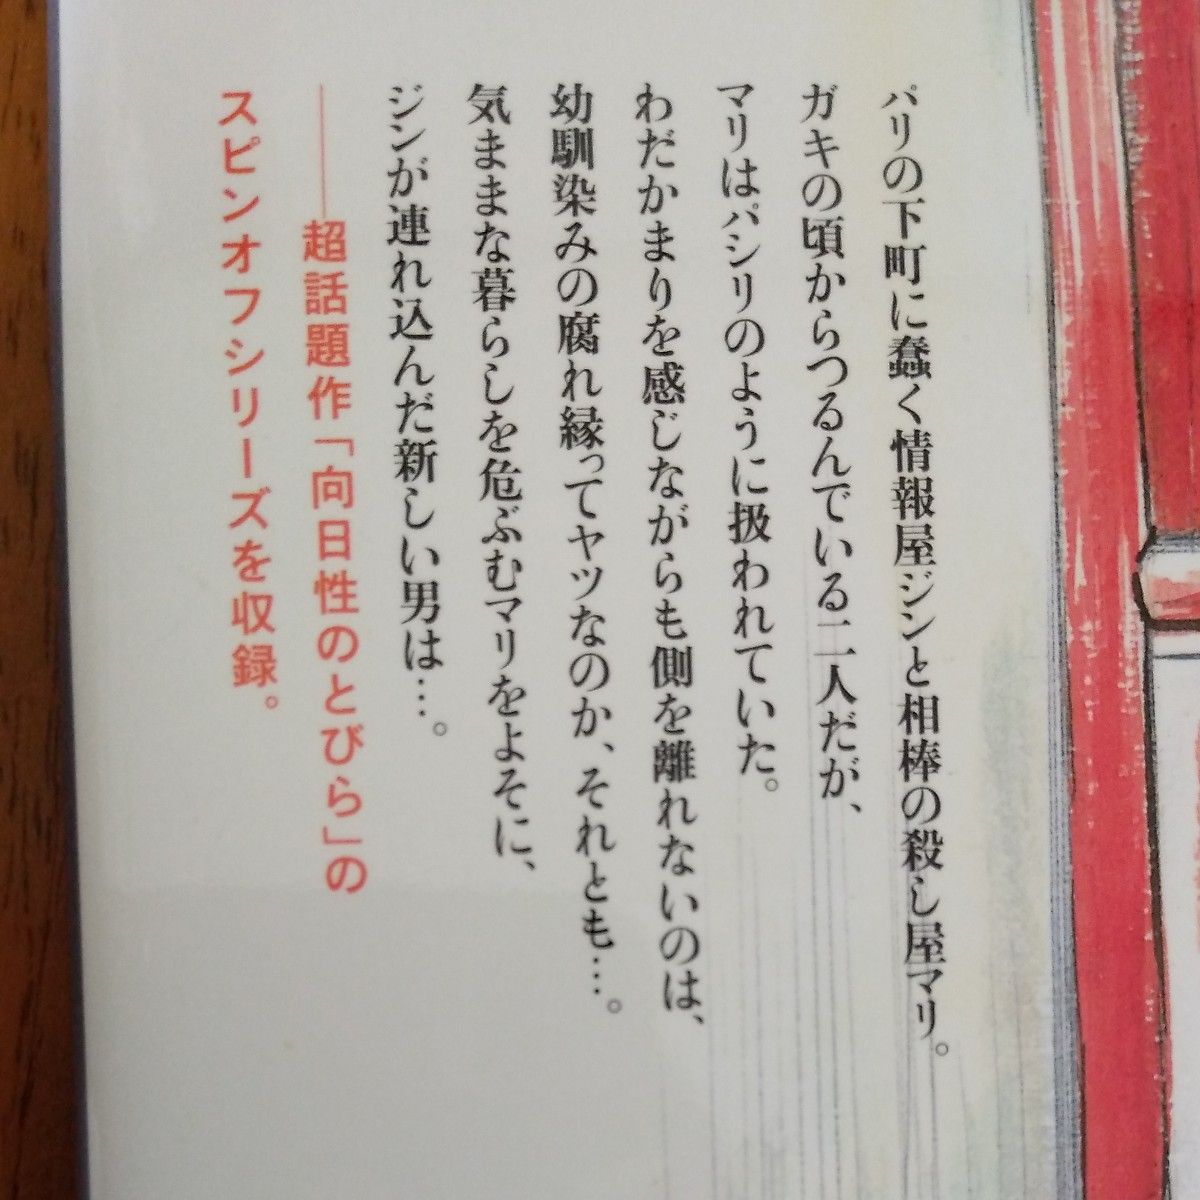 パリの下町に蠢く情報屋ジンと相棒の殺し屋マリ。
ガキの頃からつるんでいる二人だが、
マリはパシリのように扱われていた。
わだかまりを感じながらも側を離れないのは、
幼馴染みの腐れ縁ってヤツなのか、それとも…。
気ままな暮らしを危ぶむマリをよそに、
ジンが連れ込んだ新しい男は…。
――超話題作「向日性のとびら」の
スピンオフシリーズを収録。